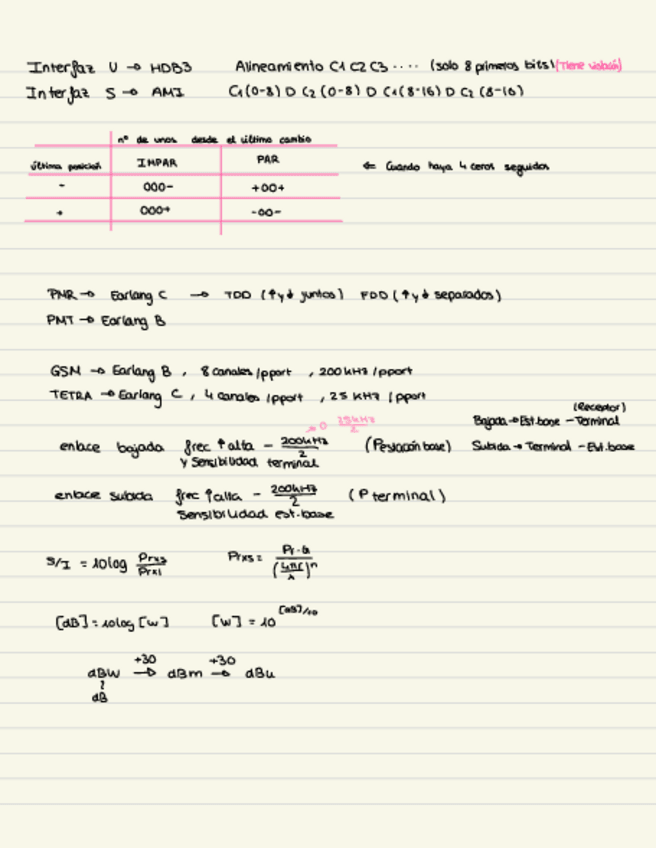 Interfaz U → HDB3 Alineamiento C1 C2 C3 .... (solo 8 primeros bits) (Tiene violación)
Interfaz S → AMI C1(0-8) D C2(0-8) D C1(8-16) D C2(8-16)
nº de unos desde el último cambio
última posición IMPAR PAR ← Cuando haya 4 ceros seguidos
- 000- +00+
+ 000+ -00-
PMR → Earlang C → TDD (↑y↓ juntos) FDD (↑y↓ separados)
PMT → Earlang B
GSM → Earlang B, 8 canales/pport, 200kHz/pport
TETRA → Earlang C, 4 canales/pport, 25 kHz/pport
(Receptor)
→ó 25kHz/2 Bajada → Est.base - Terminal
enlace bajada frec ↑alta - 200kHz/2 (Pestación base) Subida → Terminal - Est.base
y Sensibilidad terminal
enlace subida frec ↑alta - 200kHz/2 (P terminal)
Sensibilidad est-base
S/I = 10log Prxs/Prxi Prxs = Pt·G/(4πr/λ)^n
[dB] = 10log [W] [W] = 10^[dB]/10
+30 +30
dBW → dBm → dBu
dB